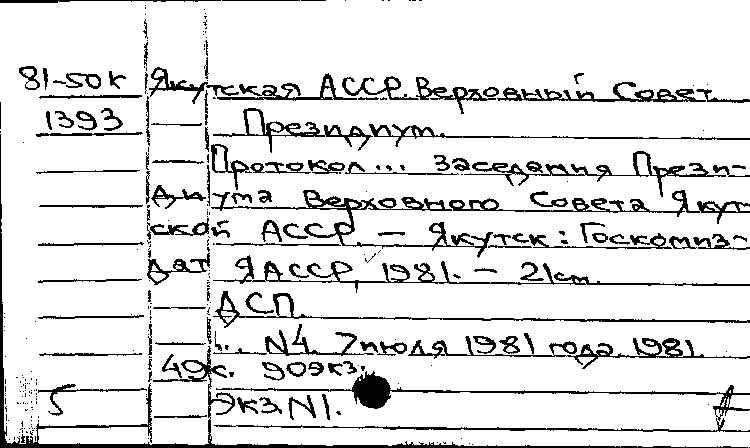 81-50к Якутская АССР. Верховный Совет
1393 Президиум.
Протокол... заседания Прези-
диума Верховного Совета Якут
ской АССР. — Якутск: Госкомиз-
дат ЯАССР, 1981. — 21 cm.
ДСП.
... N4. 7 июля 1981 года. 1981.
49с. 90экз.
5 Экз.N1.